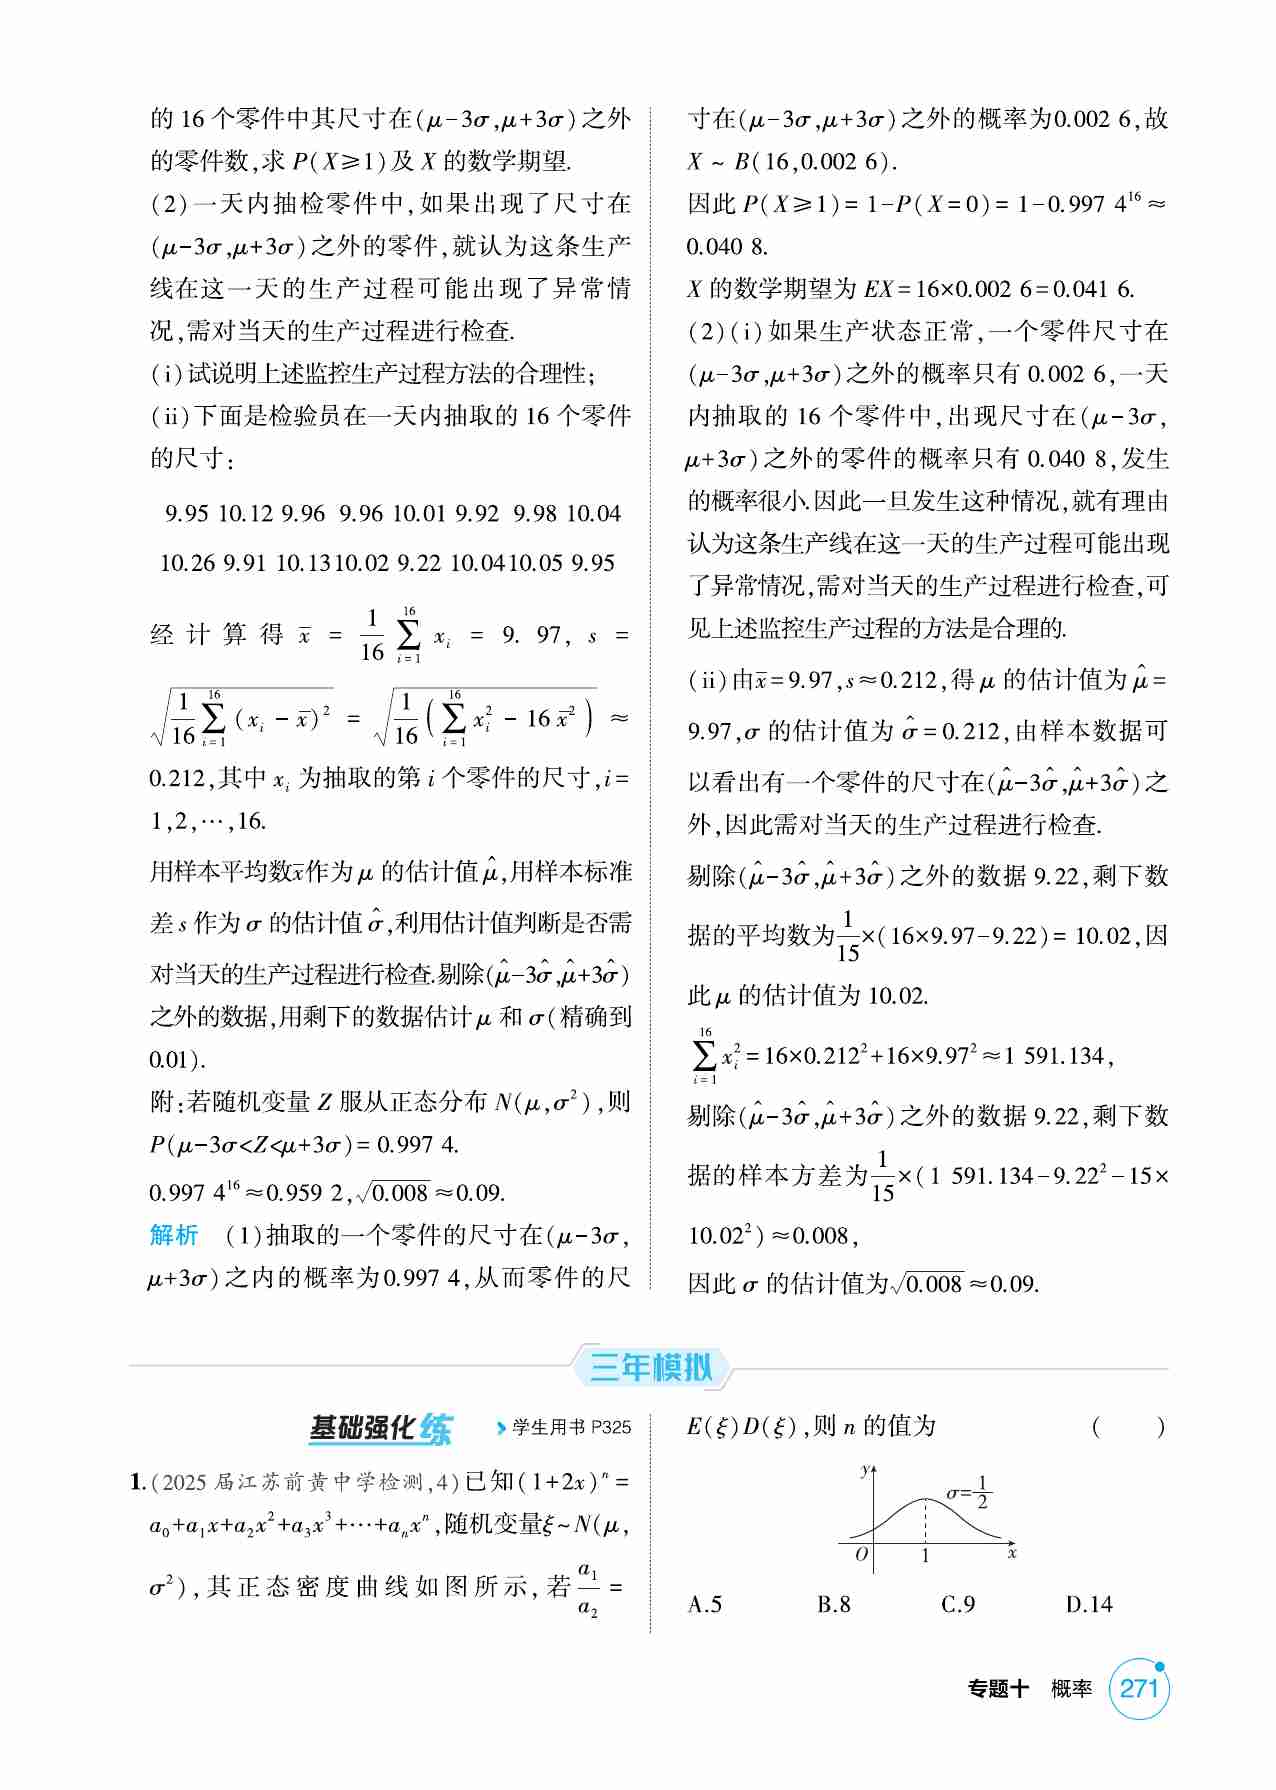 的 16 个零件中其尺寸在(μ-3σ,μ+3σ)之外
的零件数,求 P(X≥1)及 X 的数学期望.
(2)一天内抽检零件中,如果出现了尺寸在
(μ-3σ,μ+3σ)之外的零件,就认为这条生产
线在这一天的生产过程可能出现了异常情
况,需对当天的生产过程进行检查.
(ⅰ)试说明上述监控生产过程方法的合理性;
(ⅱ)下面是检验员在一天内抽取的 16 个零件
的尺寸:
9.95 10.12 9.96 9.96 10.01 9.92 9.98 10.04
10.26 9.91 10.1310.02 9.22 10.0410.05 9.95
经计算得 x̄ = 1/16 ∑_{i=1}^{16} x_i = 9.97, s =
√(1/16 ∑_{i=1}^{16} (x_i - x̄)²) = √(1/16 (∑_{i=1}^{16} x_i² - 16x̄²)) ≈
0.212,其中 x_i 为抽取的第 i 个零件的尺寸,i=
1,2,⋯,16.
用样本平均数x̄作为 μ 的估计值 μ̂,用样本标准
差 s 作为 σ 的估计值 σ̂,利用估计值判断是否需
对当天的生产过程进行检查.剔除(μ̂-3σ̂,μ̂+3σ̂)
之外的数据,用剩下的数据估计 μ 和 σ(精确到
0.01).
附:若随机变量 Z 服从正态分布 N(μ,σ²),则
P(μ-3σ<Z<μ+3σ)=0.997 4.
0.997 4¹⁶≈0.959 2,√0.008≈0.09.
解析 (1)抽取的一个零件的尺寸在(μ-3σ,
μ+3σ)之内的概率为0.997 4,从而零件的尺
寸在(μ-3σ,μ+3σ)之外的概率为0.002 6,故
X ~ B(16,0.002 6).
因此 P(X≥1)=1-P(X=0)=1-0.997 4¹⁶≈
0.040 8.
X 的数学期望为 EX=16×0.002 6=0.041 6.
(2)(ⅰ)如果生产状态正常,一个零件尺寸在
(μ-3σ,μ+3σ)之外的概率只有 0.002 6,一天
内抽取的 16 个零件中,出现尺寸在(μ-3σ,
μ+3σ)之外的零件的概率只有 0.040 8,发生
的概率很小.因此一旦发生这种情况,就有理由
认为这条生产线在这一天的生产过程可能出现
了异常情况,需对当天的生产过程进行检查,可
见上述监控生产过程的方法是合理的.
(ⅱ)由x̄=9.97,s≈0.212,得 μ 的估计值为 μ̂=
9.97,σ 的估计值为 σ̂=0.212,由样本数据可
以看出有一个零件的尺寸在(μ̂-3σ̂,μ̂+3σ̂)之
外,因此需对当天的生产过程进行检查.
剔除(μ̂-3σ̂,μ̂+3σ̂)之外的数据 9.22,剩下数
据的平均数为1/15×(16×9.97-9.22)=10.02,因
此 μ 的估计值为 10.02.
∑_{i=1}^{16} x_i²=16×0.212²+16×9.97²≈1 591.134,
剔除(μ̂-3σ̂,μ̂+3σ̂)之外的数据 9.22,剩下数
据的样本方差为1/15×(1 591.134-9.22²-15×
10.02²)≈0.008,
因此 σ 的估计值为√0.008≈0.09.
三年模拟
基础强化练 学生用书 P325
1.(2025 届江苏前黄中学检测,4)已知(1+2x)ⁿ=
a₀+a₁x+a₂x²+a₃x³+⋯+aₙxⁿ,随机变量ξ~N(μ,
σ²),其正态密度曲线如图所示,若 a₁/a₂ =
E(ξ)D(ξ),则 n 的值为 ( )
y
σ=1/2
O 1 x
A.5 B.8 C.9 D.14
专题十 概率 271